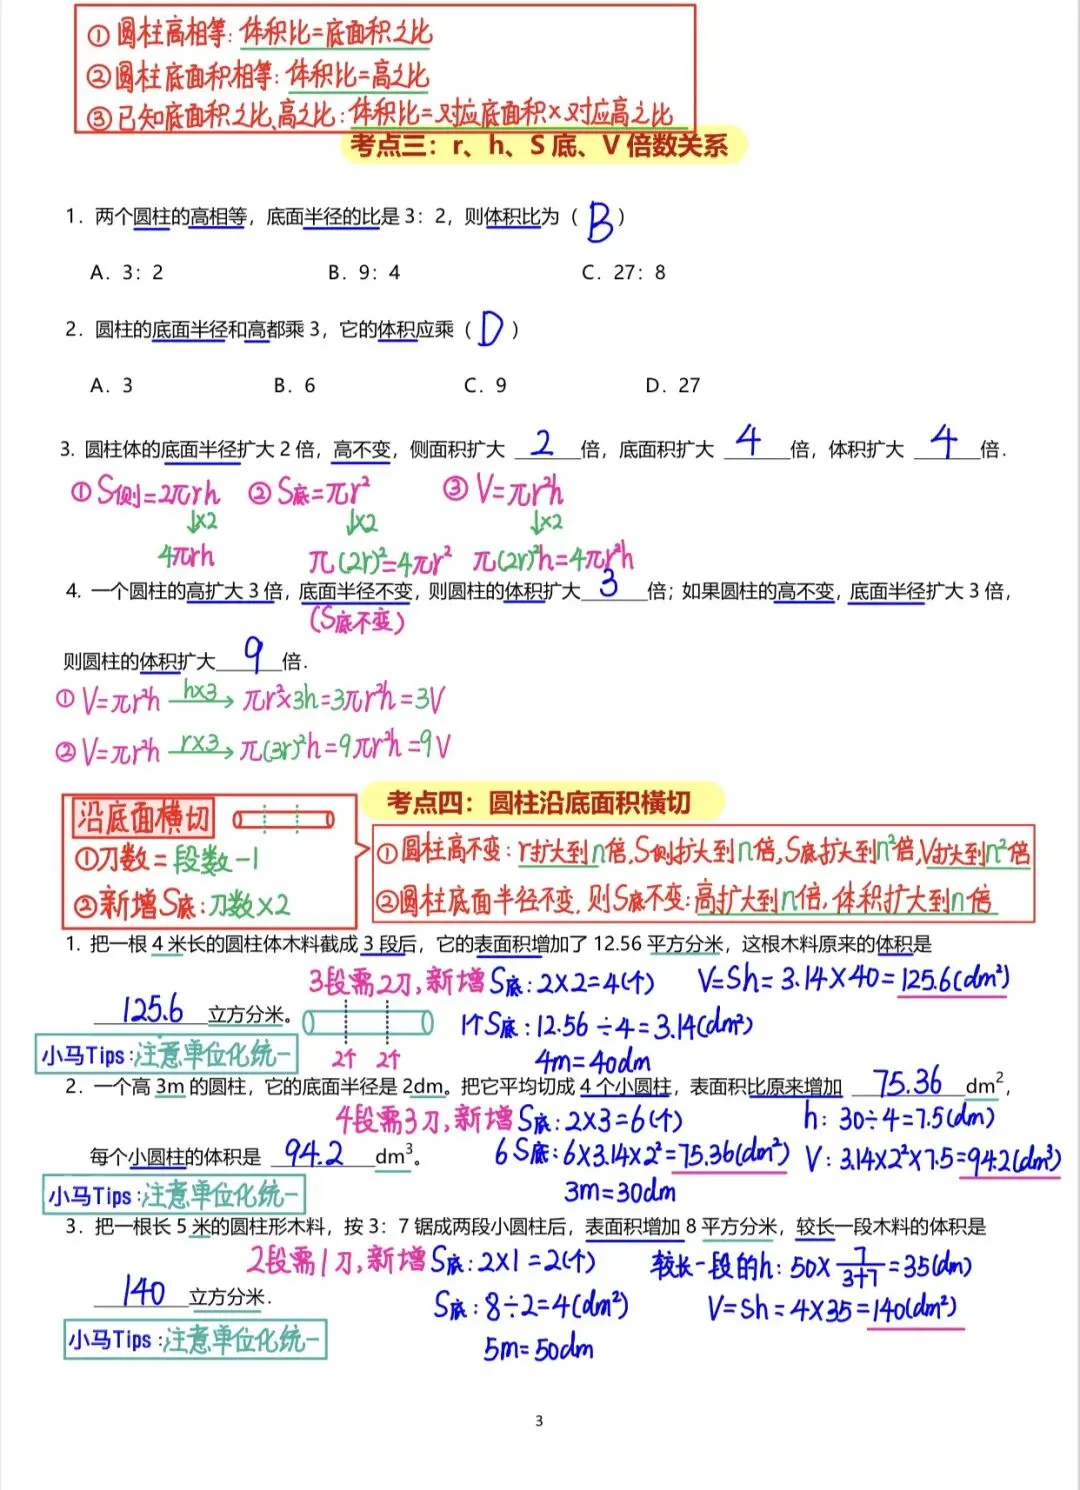 ①圆柱高相等:体积比=底面积之比
②圆柱底面积相等:体积比=高之比
③已知底面积之比、高之比:体积比=对应底面积×对应高之比
考点三：r、h、S 底、V 倍数关系
1. 两个圆柱的高相等，底面半径的比是 3：2，则体积比为（ B ）
A. 3：2 B. 9：4 C. 27：8
2. 圆柱的底面半径和高都乘 3，它的体积应乘（ D ）
A. 3 B. 6 C. 9 D. 27
3. 圆柱体的底面半径扩大 2 倍，高不变，侧面积扩大 2 倍，底面积扩大 4 倍，体积扩大 4 倍.
①S侧=2πrh ②S底=πr² ③V=πr²h
↓×2 ↓×2 ↓×2
4πrh π(2r)²=4πr² π(2r)²h=4πr²h
4. 一个圆柱的高扩大 3 倍，底面半径不变，则圆柱的体积扩大 3 倍；如果圆柱的高不变，底面半径扩大 3 倍，
(S底不变)
则圆柱的体积扩大 9 倍.
①V=πr²h h×3→ πr²×3h=3πr²h=3V
②V=πr²h r×3→ π(3r)²h=9πr²h=9V
考点四：圆柱沿底面积横切
沿底面横切
①刀数=段数-1
②新增S底:刀数×2
①圆柱高不变:r扩大到n倍,S侧扩大到n倍,S底扩大到n²倍,V扩大到n²倍
②圆柱底面半径不变,则S底不变:高扩大到n倍,体积扩大到n倍
1. 把一根 4 米长的圆柱体木料截成 3 段后，它的表面积增加了 12.56 平方分米，这根木料原来的体积是
3段需2刀,新增S底:2×2=4(个) V=Sh=3.14×40=125.6(dm²)
125.6 立方分米。
1个S底:12.56÷4=3.14(dm²)
小马Tips:注意单位化统一
2个 2个
4m=40dm
2. 一个高 3m 的圆柱，它的底面半径是 2dm。把它平均切成 4 个小圆柱，表面积比原来增加 75.36 dm²，
4段需3刀,新增S底:2×3=6(个) h:30÷4=7.5(dm)
每个小圆柱的体积是 94.2 dm³。
6S底:6×3.14×2²=75.36(dm²) V:3.14×2²×7.5=94.2(dm³)
小马Tips:注意单位化统一
3m=30dm
3. 把一根长 5 米的圆柱形木料，按 3：7 锯成两段小圆柱后，表面积增加 8 平方分米，较长一段木料的体积是
2段需1刀,新增S底:2×1=2(个) 较长一段的h:50×7/3+7=35(dm)
140 立方分米.
S底:8÷2=4(dm²) V=Sh=4×35=140(dm²)
小马Tips:注意单位化统一
5m=50dm
3